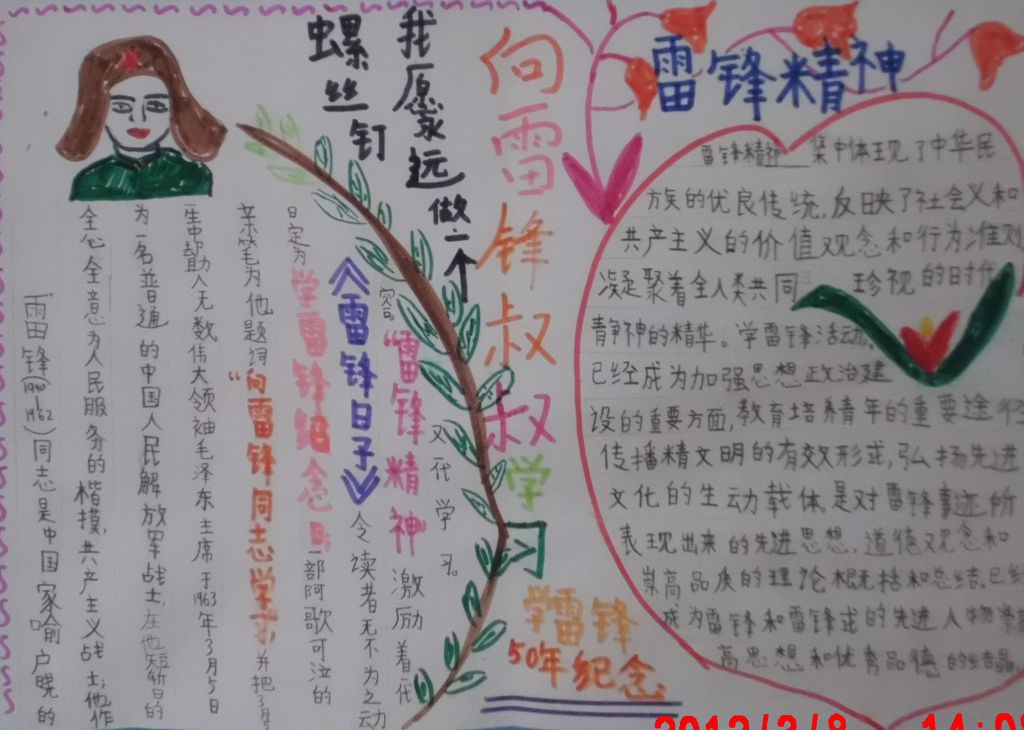 我愿永远做一个
螺丝钉
向雷锋叔叔学习
学雷锋
50年纪念
雷锋精神
雷锋精神 集中体现了中华民
族的优良传统,反映了社会义和
共产主义的价值观念和行为准则
凝聚着全人类共同 珍视的时代
精神的精华。学雷锋活动,
已经成为加强思想政治建
设的重要方面,教育培养青年的重要途径
传播精文明的有效形式,弘扬先进
文化的生动载体。是对雷锋事迹,所
表现出来的先进思想,道德观念和
崇高品质的理论概括和总结。已经
成为雷锋和雷锋式的先进人物
高思想和优秀品德的结晶。
雷锋(1940
1962)同志是中国家喻户晓的
全心全意为人民服务的楷摸,共产主义战士;他作
为一名普通的中国人民解放军战士,在他短暂的
一生帮助人无数伟大领袖毛泽东主席于1963年3月5日
亲笔为他题词“向雷锋同志学习”并把3月5
日定为学雷锋纪念日;一部阿歌可泣的
《雷锋日子》令读者无不为之动
容。“雷锋精神”激励着一代
又一代学习。
2012/3/8 14:0